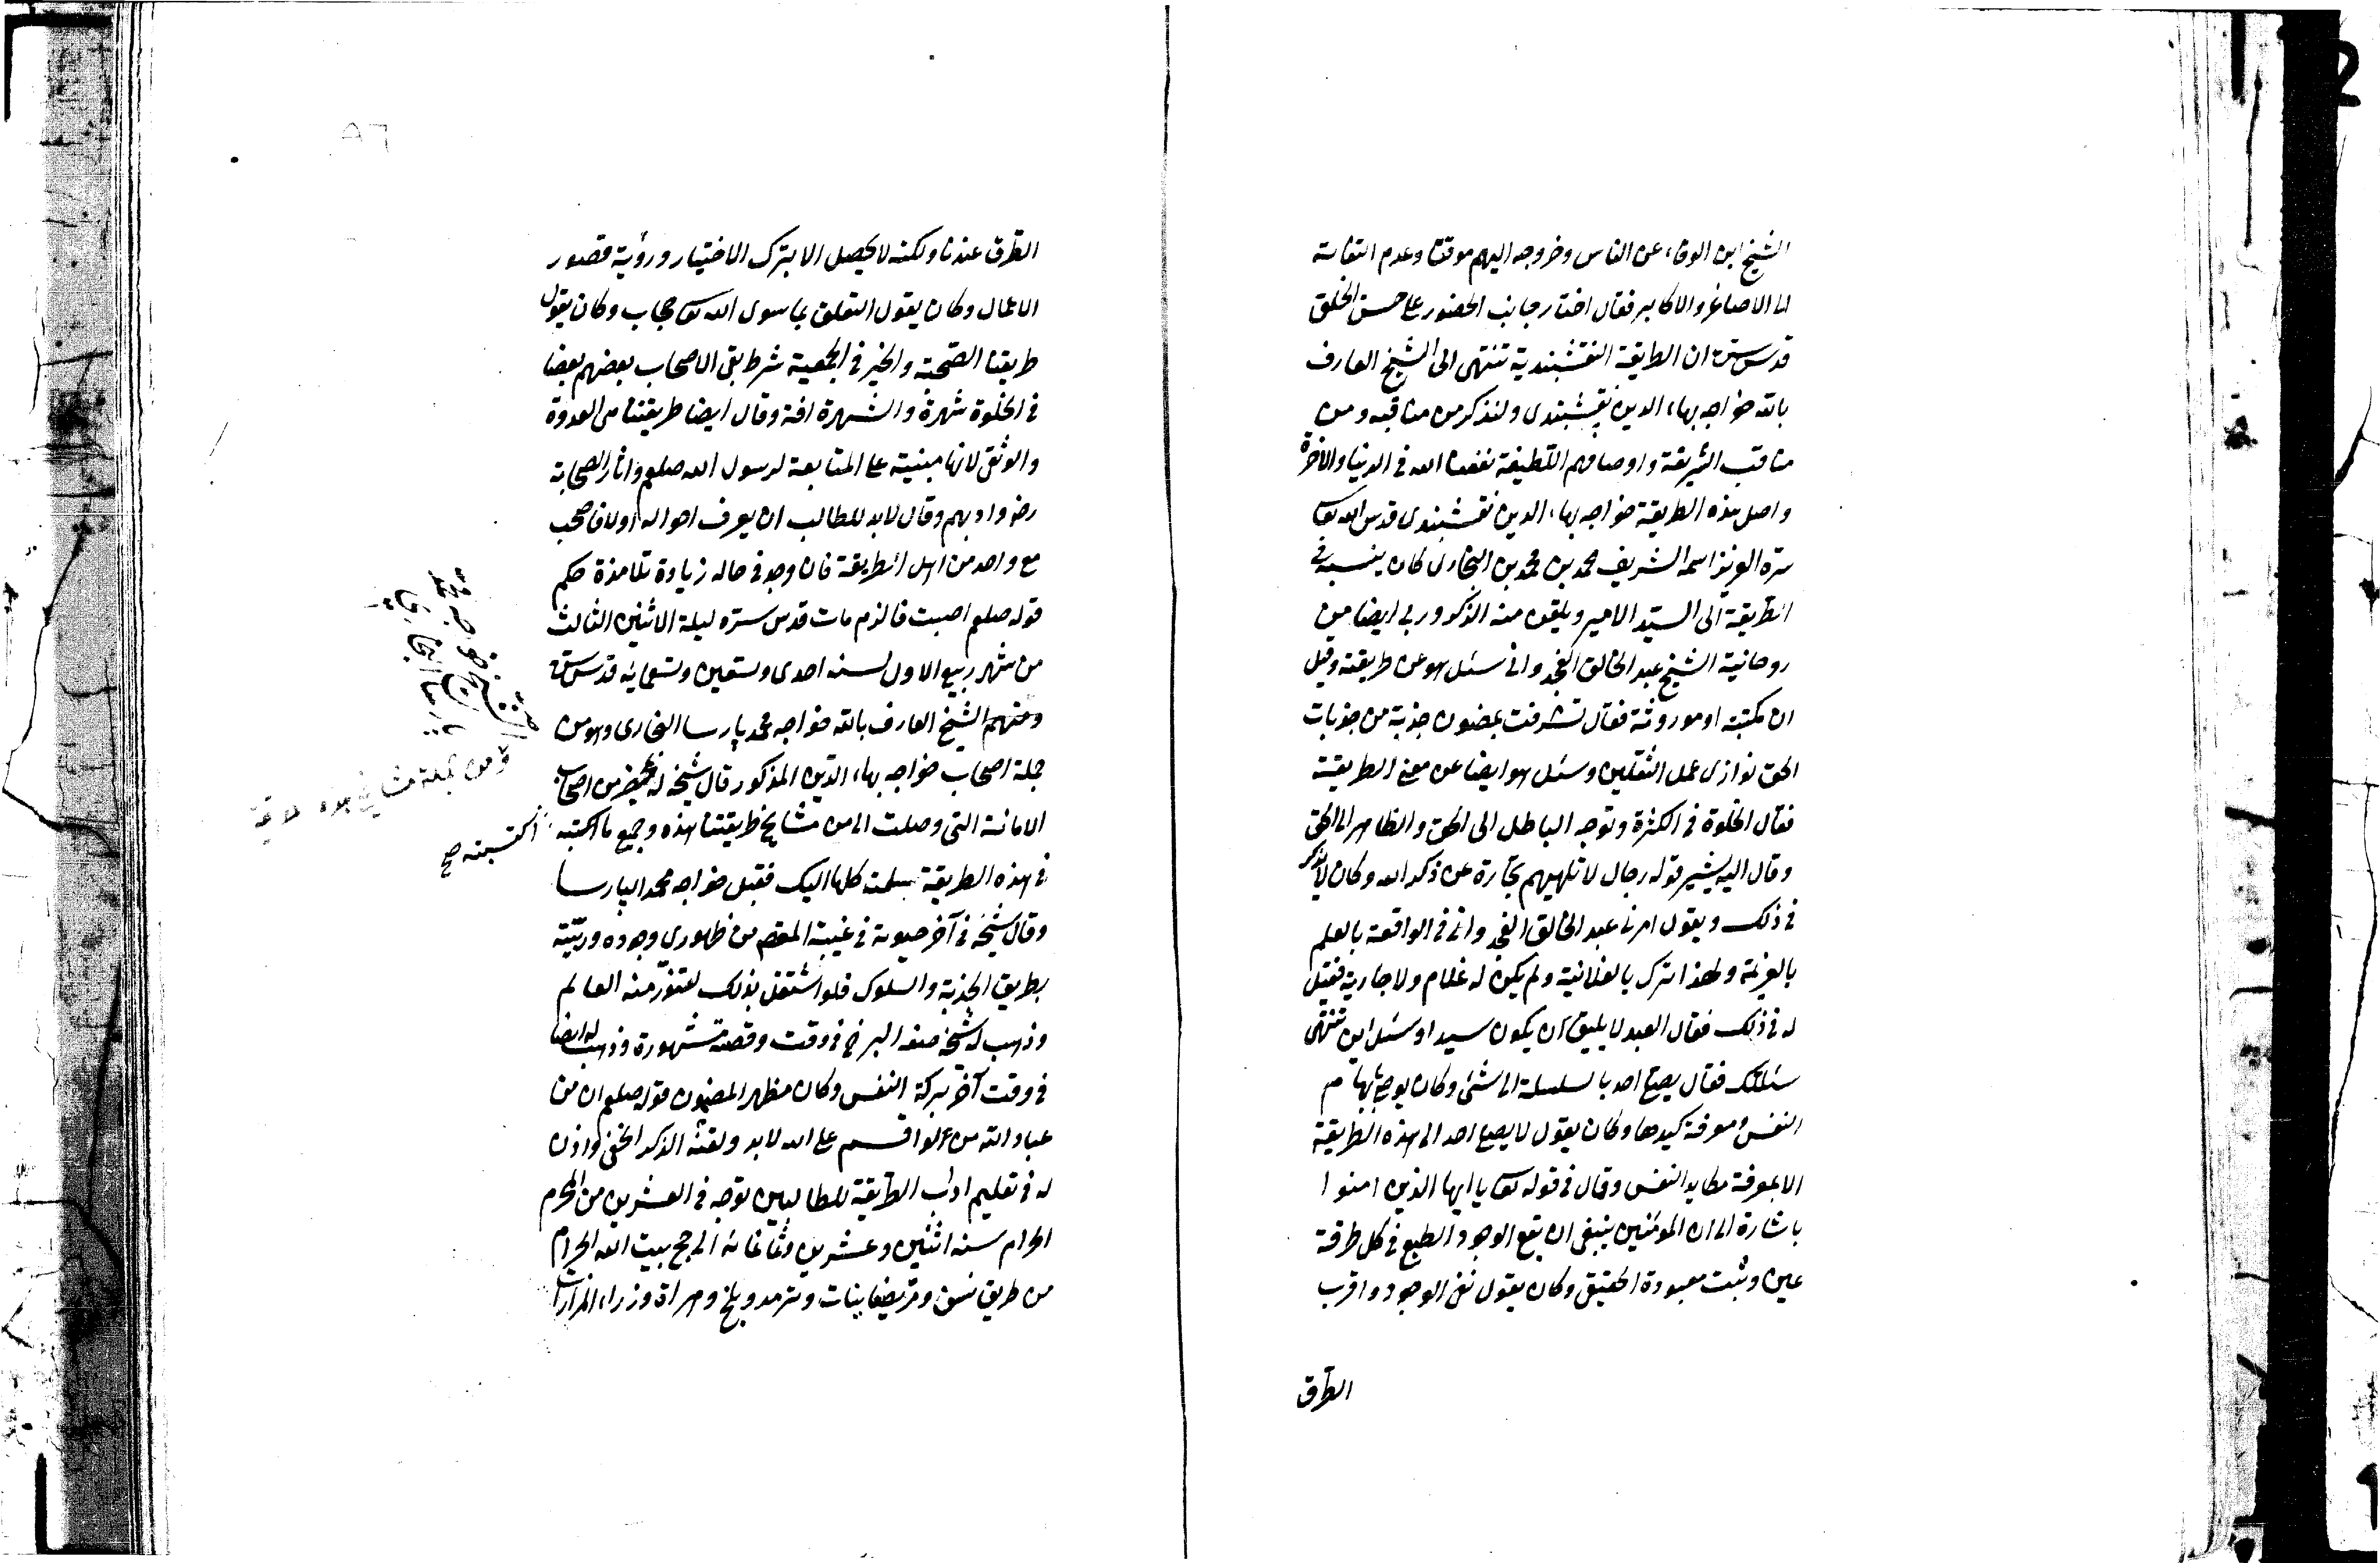 الشيخ ابن الوفاء عن الناس وخروجه اليهم موقتا وعدم التفاته
الى الاصاغر والاكابر فقال اختار جانب الحضور على حسن الخلق
قدس سره ان الطريقة النقشبندية تنتهى الى الشيخ العارف
بالله خواجه بهاء الدين نقشبندى ولنذكر من مناقبه ومن
مناقب الشريفة واوصافهم اللطيفة نفعنا الله فى الدنيا والآخرة
واصل هذه الطريقة خواجه بهاء الدين نقشبندى قدس الله تعالى
سره العزيز اسمه الشريف محمد بن محمد بن البخارى كان ينسبه فى
الطريقة الى السيد الامير ويلقن منه الذكر وربى ايضا من
روحانية الشيخ عبد الخالق الغجدوانى سئل هو عن طريقته وقيل
ان مكتبة او موروثة فقال تشرفت بمضمون جذبة من جذبات
الحق توازى عمل الثقلين وسئل هو ايضا عن معنى الطريقة
فقال الخلوة فى الكثرة وتوجه الباطل الى الحق والظاهر الى الحق
وقال اليه يشير قوله رجال لا تلهيهم تجارة عن ذكر الله وكان لا يذكر
فى ذلك ويقول امرنى عبد الخالق الغجدوانى فى الواقعة بالعلم
بالعزيمة ولهذا اترك بالعلانية ولم يكن له غلام ولا جارية فقيل
له فى ذلك فقال العبد لا يليق ان يكون سيدا وسئل اين تنتهى
سلسلتك فقال يصح احد بالسلسلة الى شئ وكان يوصى
النفس ومعرفة كيدها وكان يقول لا يصح احد الى هذه الطريقة
الا بمعرفة مكايد النفس وقال فى قوله تعالى يا ايها الذين امنوا
باشارة الى ان المؤمنين ينبغى ان يقع الوجود الطبع فى كل طرفة
عين وثبت معبودة الحقيقى وكان يقول نفى الوجود واقرب
الطرق
الطرق عندنا ولكنه لا يحصل الا بترك الاختيار ورؤية قصور
الاعمال وكان يقول التعلق بما سوى الله تعالى حجاب وكان يقول
طريقنا الصحبة والخير فى الجمعية شرط بقى الاصحاب بعضهم بعضا
فى الخلوة شهرة والشهرة افة وقال ايضا طريقتنا من العروة
والوثقى لانها مبنية على المتابعة لرسول الله صلعم واثار الصحابة
رضوا وبهم وقال لابد للطالب ان يعرف احواله اولا فاصحب
مع واحد من اهل الطريقة فان وجد فى حاله زيادة تلامذة حكم
قوله صلعم اصبت فالزم مات قدس سره ليلة الاثنين الثالث
من شهر ربيع الاول لسنه احدى وتسعين وتسعمايه قدس سره
ومنهم الشيخ العارف بالله خواجه محمد پارسا البخارى وهو من
جملة اصحاب خواجه بهاء الدين المذكور قال شيخه له بمحضر من اصحاب
الامانة التى وصلت الى من مشايخ طريقتنا هذه وجميع ما اكتبته
فى هذه الطريقة سلمت كلها اليك فقبل خواجه محمد الپارسا
وقال شيخه فى آخر حيوته فى غيبة المقصد من ظهورى وجوده وربيته
بطريق الجذبة والسلوك فلو اشتغل بذلك لتنور منه العالم
وذهب له شيخه صفه البرخ فى وقت وقصته مشهورة وذهب له ايضا
فى وقت آخر بركة النفس وكان مظهر المضمون قوله صلعم ان من
عباد الله من لو اقسم على الله لابره ولقنه الذكر الخفى واذن
له فى تعليم اداب الطريقة للطالبين توجه فى العشرين من المحرم
الحرام سنه اثنين وعشرين وثمانمائه الى حج بيت الله الحرام
من طريق نسف وترمد وبلخ وهراة وزراء المزارات
الشيخ خواجه محمد
پارسا البخارى
ومن جملة مشايخ هذه
اكتسبته صح
٨٦